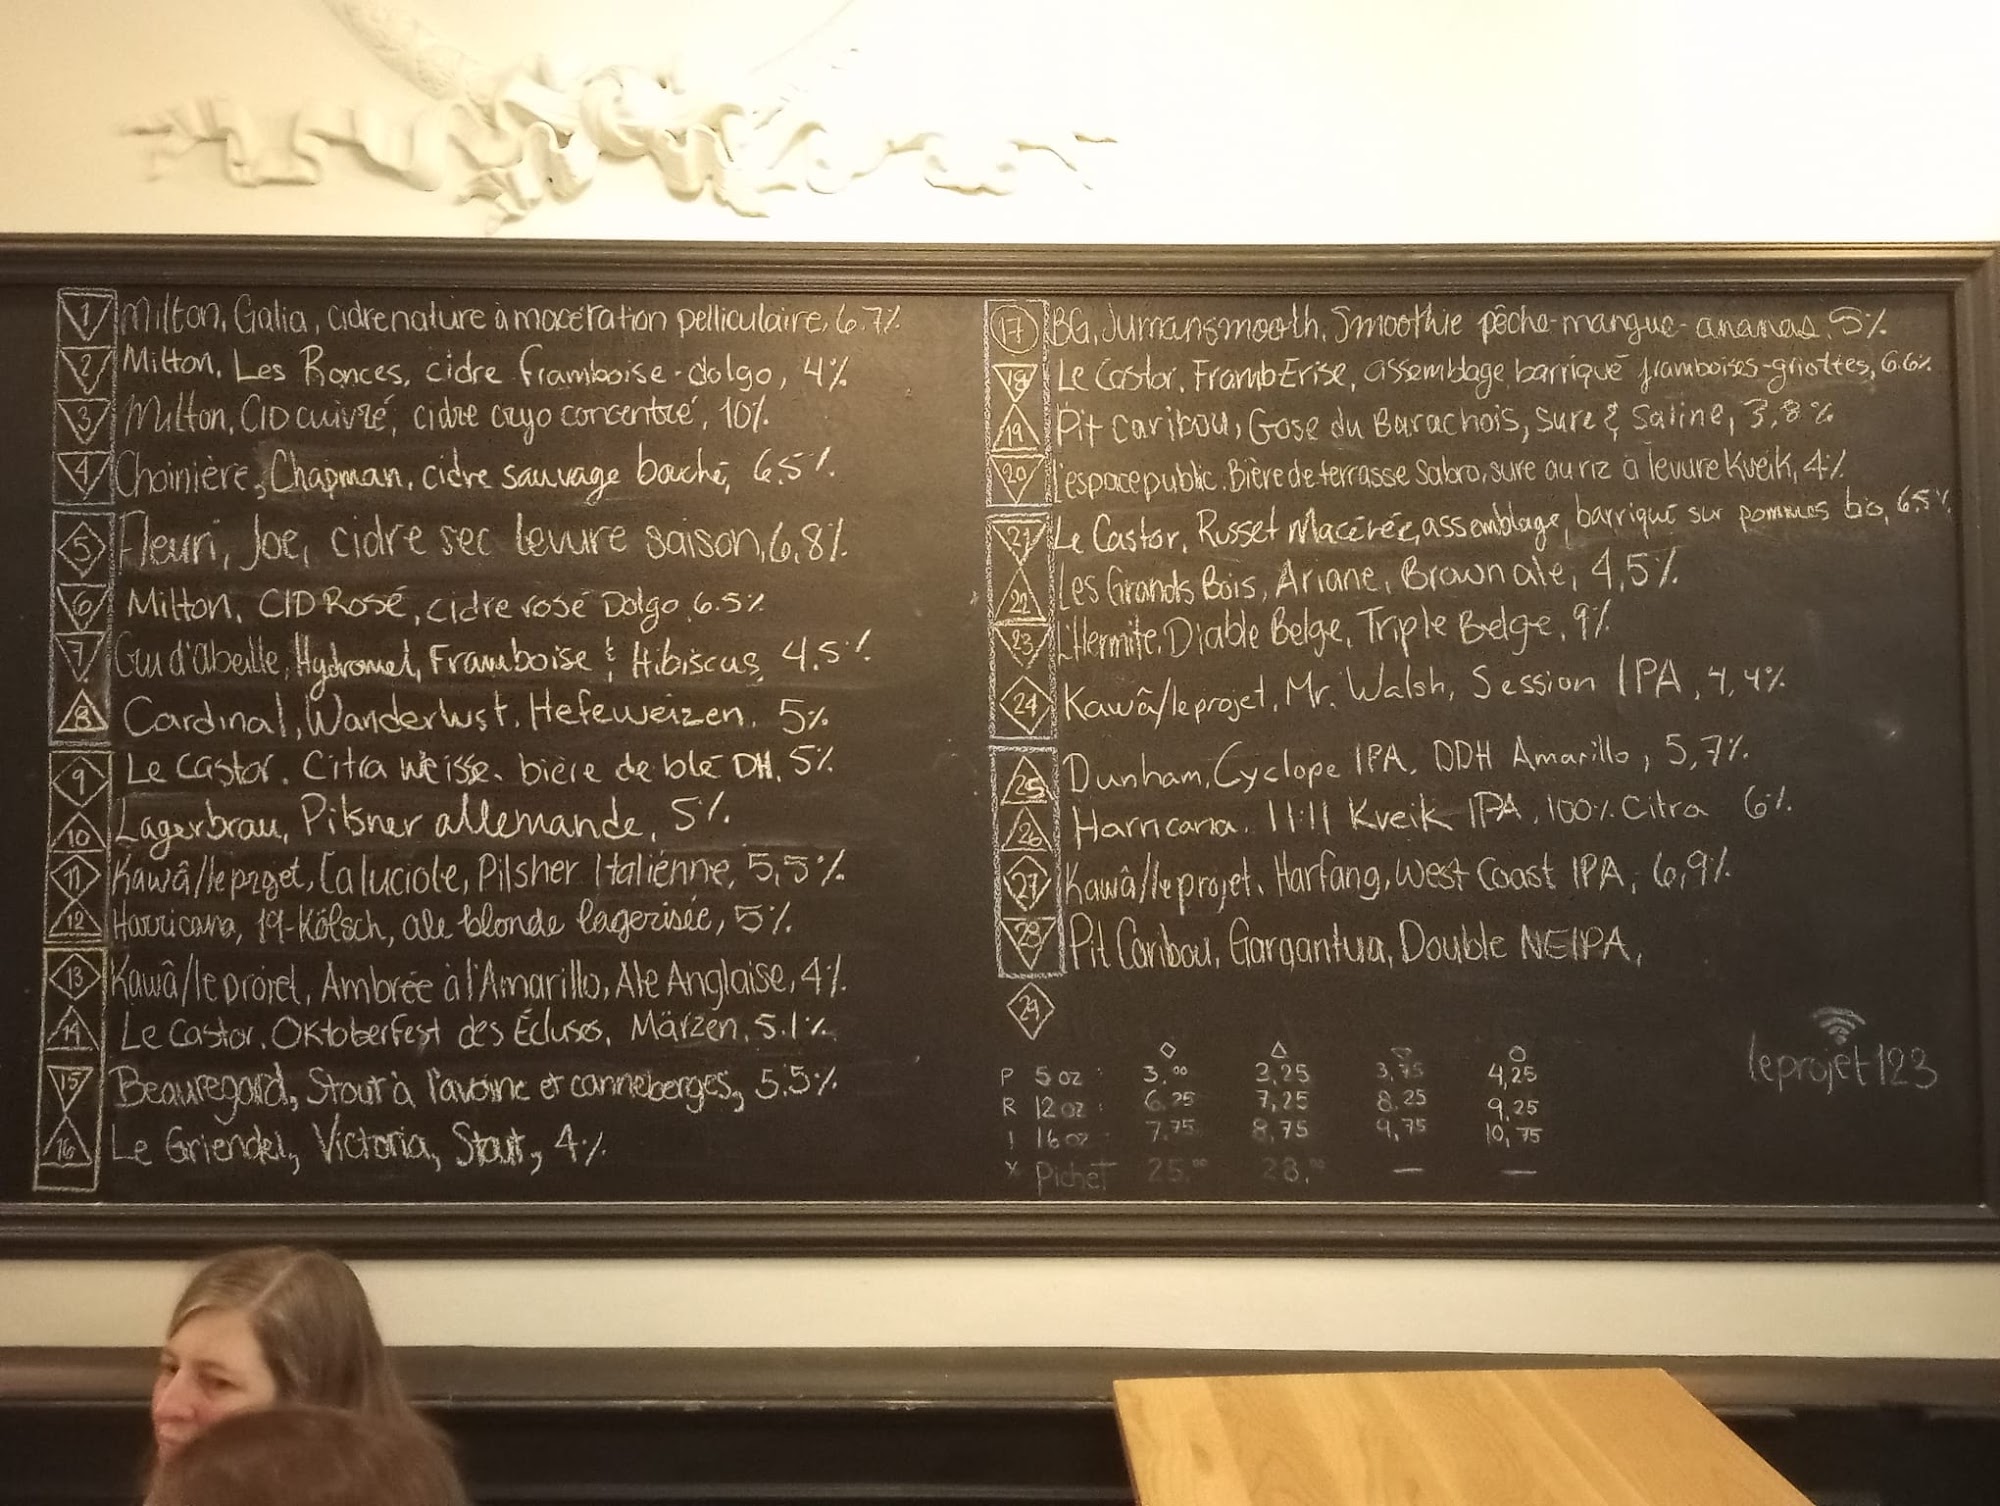 1 Milton, Galia, cidre nature à macération pelliculaire, 6.7%
2 Milton, Les Ronces, cidre framboise-dolgo, 4%
3 Milton, CID cuivré, cidre cryo concentré, 10%
4 Choinière, Chapman, cidre sauvage bouché, 6.5%
5 Fleuri, Joe, cidre sec levure saison, 6,8%
6 Milton, CID Rosé, cidre rosé Dolgo, 6.5%
7 Gui d'abeille, Hydromel, Framboise & Hibiscus, 4.5%
8 Cardinal, Wanderlust, Hefeweizen, 5%
9 Le Castor, Citra Weisse, bière de blé DH, 5%
10 Lagerbrau, Pilsner allemande, 5%
11 Kawâ/leprojet, la luciole, Pilsner Italienne, 5,5%
12 Harricana, 19-Kölsch, ale blonde lagerisée, 5%
13 Kawâ/le projet, Ambrée à l'Amarillo, Ale Anglaise, 4%
14 Le Castor, Oktoberfest des Écluses, Märzen, 5.1%
15 Beauregard, Stout à l'avoine et canneberges, 5.5%
16 Le Griendel, Victoria, Stout, 4%
17 BG, Jumansmooth, Smoothie pêche-mangue-ananas, 5%
18 Le Castor, FrambErise, assemblage barriqué framboises-griottes, 6.6%
19 Pit Caribou, Gose du Barachois, sure & saline, 3,8%
20 l'espace public, Bière de terrasse Sabro, sure au riz à levure Kveik, 4%
21 Le Castor, Russet Macérée, assemblage, barriqué sur pommes bio, 6,5%
22 Les Grands Bois, Ariane, Brown ale, 4,5%
23 L'Hermite, Diable Belge, Triple Belge, 9%
24 Kawâ/leprojet, Mr. Walsh, Session IPA, 4,4%
25 Dunham, Cyclope IPA, DDH Amarillo, 5,7%
26 Harricana, 11:11 Kveik IPA, 100% Citra 6%
27 Kawâ/leprojet, Harfang, West Coast IPA, 6,9%
28 Pit Caribou, Gargantua, Double NEIPA,
29
◇ △ ▽ ○
P 5 oz : 3.00 3,25 3,75 4,25
R 12 oz : 6,25 7,25 8.25 9,25
I 16 oz : 7.75 8,75 9,75 10,75
X Pichet 25.00 28.00 — —
leprojet123